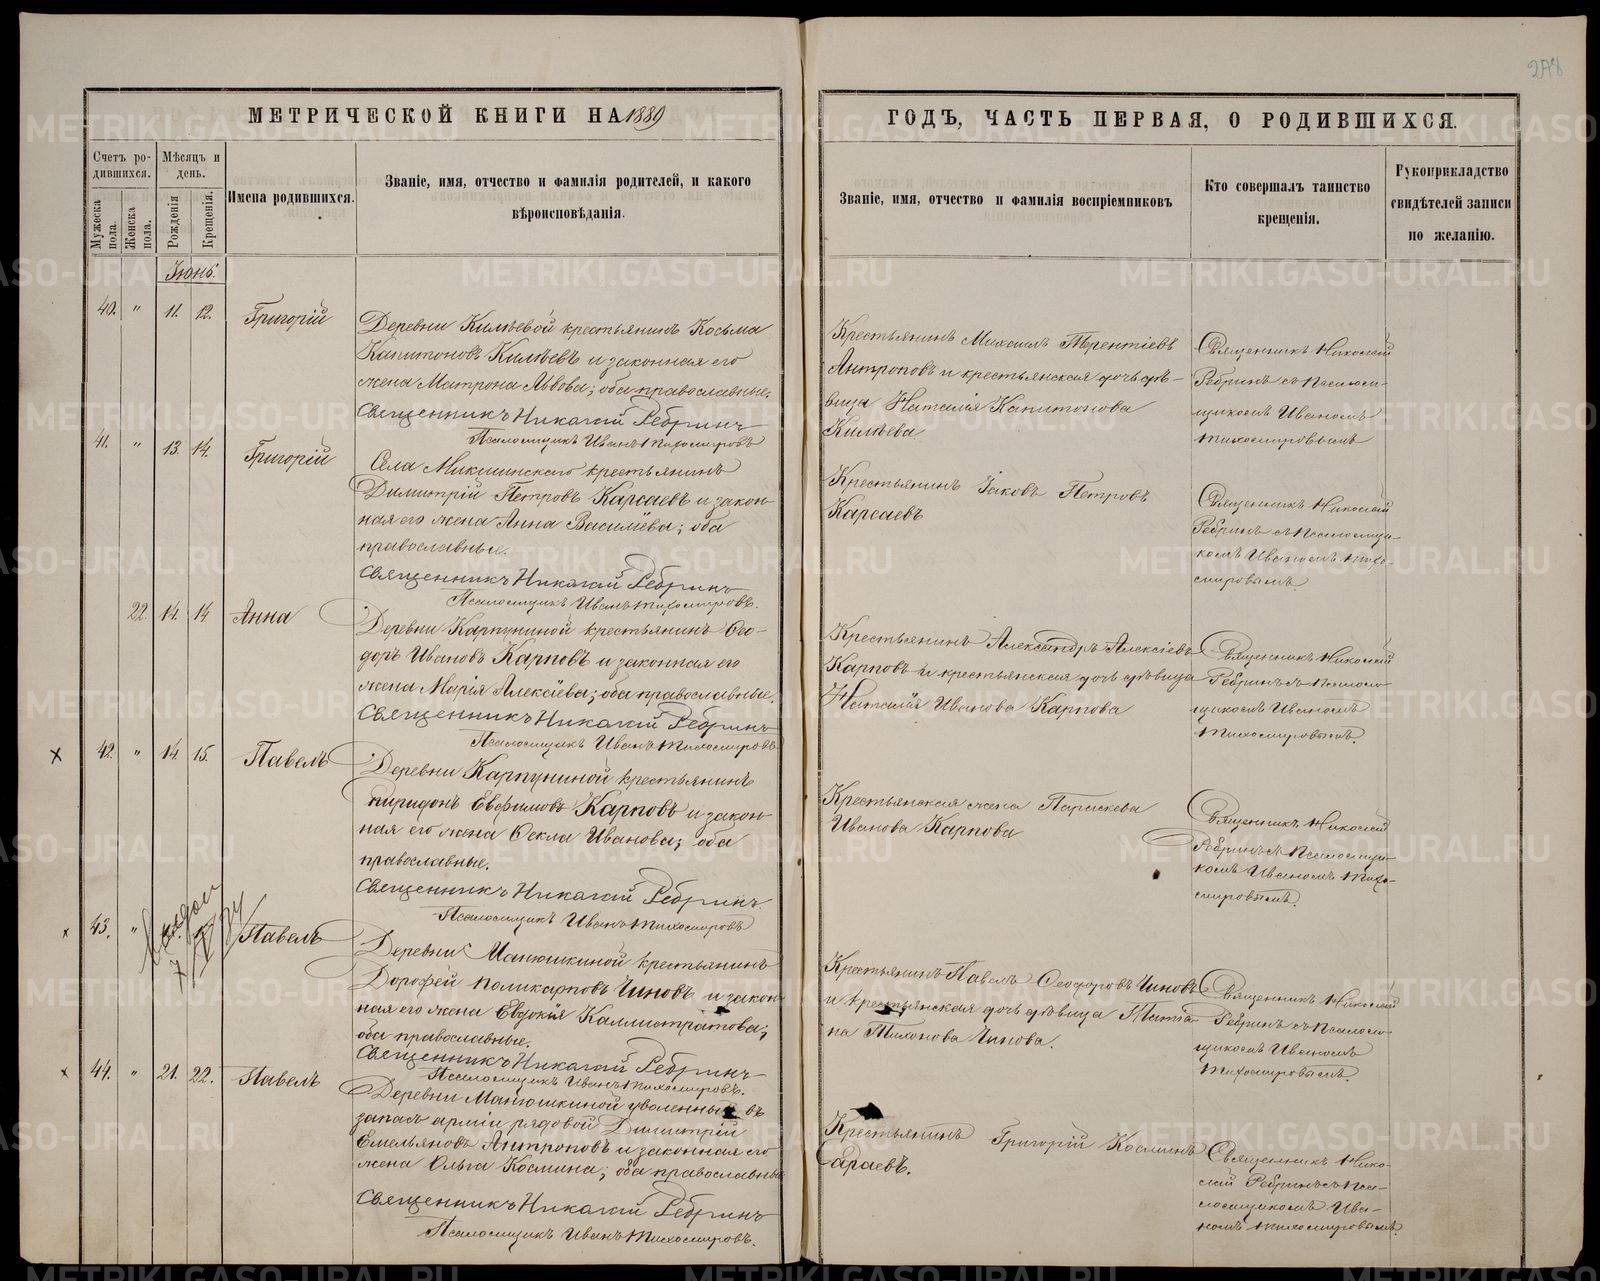 278
МЕТРИЧЕСКОЙ КНИГИ НА 1889
ГОДЪ, ЧАСТЬ ПЕРВАЯ, О РОДИВШИХСЯ.
Счетъ ро-
дившихся.
Мужеска пола.
Женска пола.
Мѣсяцъ и
день.
Рожденія
Крещенія.
Имена родившихся.
Званіе, имя, отчество и фамилія родителей, и какого
вѣроисповѣданія.
Званіе, имя, отчество и фамилія воспріемниковъ
Кто совершалъ таинство
крещенія.
Рукоприкладство
свидѣтелей записи
по желанію.
Іюнь.
40. " 11. 12. Григорій
Деревни Килѣевой крестьянинъ Косьма
Капитоновъ Килѣевъ и законная его
жена Матрона Львова; оба православные.
Священникъ Николай Ребринъ
Псаломщикъ Иванъ Тихомировъ
Крестьянинъ Михаилъ Терентіевъ
Антроповъ и крестьянская дочь дѣ-
вица Наталія Капитонова
Килѣева
Священникъ Николай
Ребринъ съ Псаломщи-
комъ Иваномъ
Тихомировымъ
41. " 13. 14. Григорій
Села крестьянинъ
Димитрій Петровъ Карсаевъ и закон-
ная его жена Анна Василіева; оба
православные.
Священникъ Николай Ребринъ
Псаломщикъ Иванъ Тихомировъ.
Крестьянинъ Іаковъ Петровъ
Карсаевъ
Священникъ Николай
Ребринъ съ Псаломщи-
комъ Иваномъ Тихо-
мировымъ
22. 14. 14. Анна
Деревни Карпуниной крестьянинъ Ѳео-
доръ Ивановъ Карповъ и законная его
жена Марія Алексіева; оба православные.
Священникъ Николай Ребринъ
Псаломщикъ Иванъ Тихомировъ
Крестьянинъ Александръ Алексіевъ
Карповъ и крестьянская дочь дѣвица
Наталія Иванова Карпова
Священникъ Николай
Ребринъ съ Псалом-
щикомъ Иваномъ
Тихомировымъ.
х 42. " 14. 15. Павелъ
Деревни Карпуниной крестьянинъ
Спиридонъ Евфимовъ Карповъ и закон-
ная его жена Ѳекла Иванова; оба
православные.
Священникъ Николай Ребринъ
Псаломщикъ Иванъ Тихомировъ
Крестьянская жена Параскева
Иванова Карпова
Священникъ Николай
Ребринъ съ Псаломщи-
комъ Иваномъ Тихо-
мировымъ.
х 43. " Павелъ
Деревни Манюшкиной крестьянинъ
Дорофей Поликарповъ Чиновъ и закон-
ная его жена Евдокія Каллистратова;
оба православные.
Священникъ Николай Ребринъ
Псаломщикъ Иванъ Тихомировъ.
Крестьянинъ Павелъ Ѳеодоровъ Чиновъ
и крестьянская дочь дѣвица Татіа-
на Тихонова Чинова.
Священникъ Николай
Ребринъ съ Псалом-
щикомъ Иваномъ
Тихомировымъ.
х 44. " 21. 22. Павелъ
Деревни Манюшкиной уволенный въ
запасъ арміи рядовой Димитрій
Емельяновъ Антроповъ и законная его
жена Ольга Космина; оба православные
Священникъ Николай Ребринъ
Псаломщикъ Иванъ Тихомировъ.
Крестьянинъ Григорій Косминъ
Сараевъ.
Священникъ Нико-
лай Ребринъ съ Пса-
ломщикомъ Ива-
номъ Тихомировымъ
METRIKI.GASO-URAL.RU